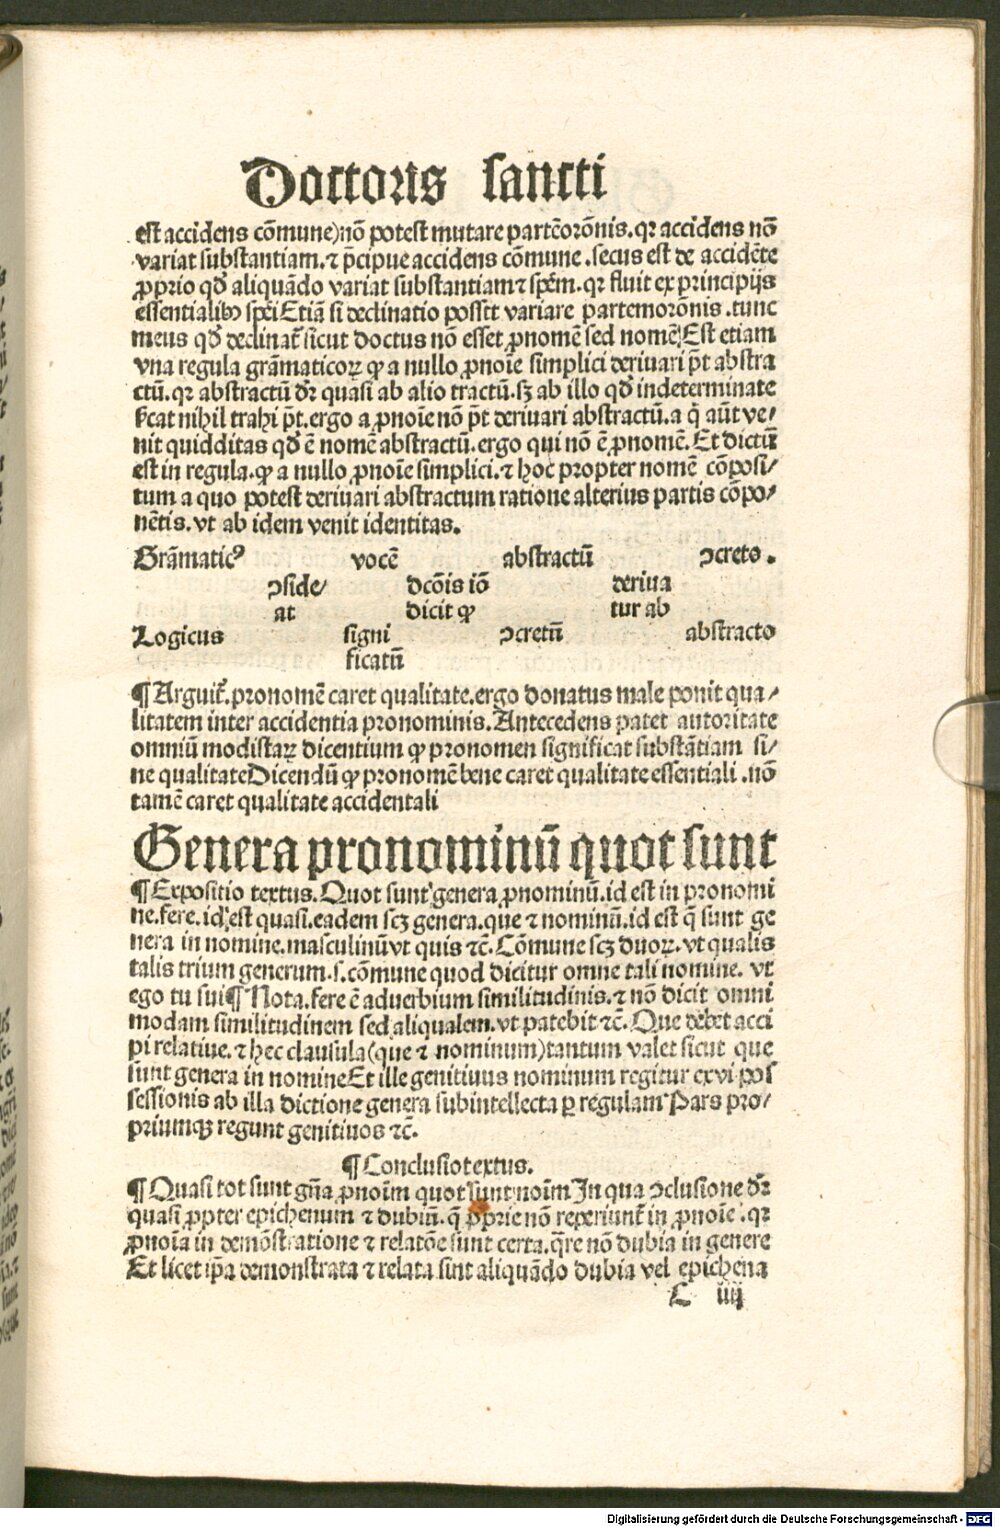 Doctoris sancti
est accidens cōmune)nō potest mutare partēorōnis.qꝛ accidens nō
variat substantiam.⁊ p̄cipue accidens cōmune.secus est de accidēte
ꝓprio qđ aliquādo variat substantiam⁊ spēm.qꝛ fluit ex principijs
essentialibꝰ spēi Etiā si declinatio posset variare partemorōnis.tunc
meus qđ declinat̄ sicut doctus nō esset ꝓnomē sed nomē.Est etiam
vna regula grāmaticoꝝ ꝙ a nullo ꝓnoīe simplici deriuari p̄t abstra
ctū.qꝛ abstractū dꝛ̄ quasi ab alio tractū.sꝫ ab illo qđ indeterminate
nihil trahi p̄t.ergo a ꝓnoīe nō p̄t deriuari abstractū.a q̄ aūt ve/
nit quidditas qđ ē nomē abstractū.ergo qui nō ē ꝓnomē.Et dictū
est in regula.ꝙ a nullo ꝓnoīe simplici.⁊ hoc propter nomē cōposi/
tum a quo potest deriuari abstractum ratione alterius partis cōpo/
nētis.vt ab idem venit identitas.
Grāmaticꝰ vocē abstractū ꝯcreto.
ꝯside/ dcōis iō deriua
at dicit ꝙ tur ab
Logicus signi ꝯcretū abstracto
ficatū
¶ Arguit̄.pronomē caret qualitate.ergo donatus male ponit qua/
litatem inter accidentia pronominis.Antecedens patet autoritate
omniū modistaꝝ dicentium ꝙ pronomen significat substātiam si/
ne qualitateDicendū ꝙ pronomē bene caret qualitate essentiali.nō
tamē caret qualitate accidentali
Genera pronominū quot sunt
¶ Expositio textus.Quot sunt genera ꝓnominū.id est in pronomi
ne.fere.id est quasi.eadem scꝫ genera.que ⁊ nominū.id est q̄ sunt ge
nera in nomine.masculinū vt quis ⁊c̄.Cōmune scꝫ duoꝝ.vt qualis
talis trium generum.s.cōmune quod dicitur omne tali nomine. vt
ego tu sui¶ Nota.fere ē aduerbium similitudinis.⁊ nō dicit omni
modam similitudinem sed aliqualem.vt patebit ⁊c̄.Que debet acci
pi relatiue.⁊ hec clausula(que ⁊ nominum)tantum valet sicut que
sunt genera in nomineEt ille genitiuus nominum regitur ex vi pos
sessionis ab illa dictione genera subintellecta ꝑ regulam Pars pro/
priumqꝫ regunt genitiuos ⁊c̄.
¶ Conclusiotextus.
¶ Quasi tot sunt gn̄a ꝓnoīm quot sunt noīm In qua ꝯclusione dꝛ̄
quasi ꝓpter epichenum ⁊ dubiū.q̄ ꝓprie nō reperiunt̄ in ꝓnoīe.qꝛ
ꝓnoīa in demōstratione ⁊ relatōe sunt certa.q̄re nō dubia in genere
Et licet ip̄a demonstrata ⁊ relata sint aliquādo dubia vel epichena
C iiij
Digitalisierung gefördert durch die Deutsche Forschungsgemeinschaft - DFG